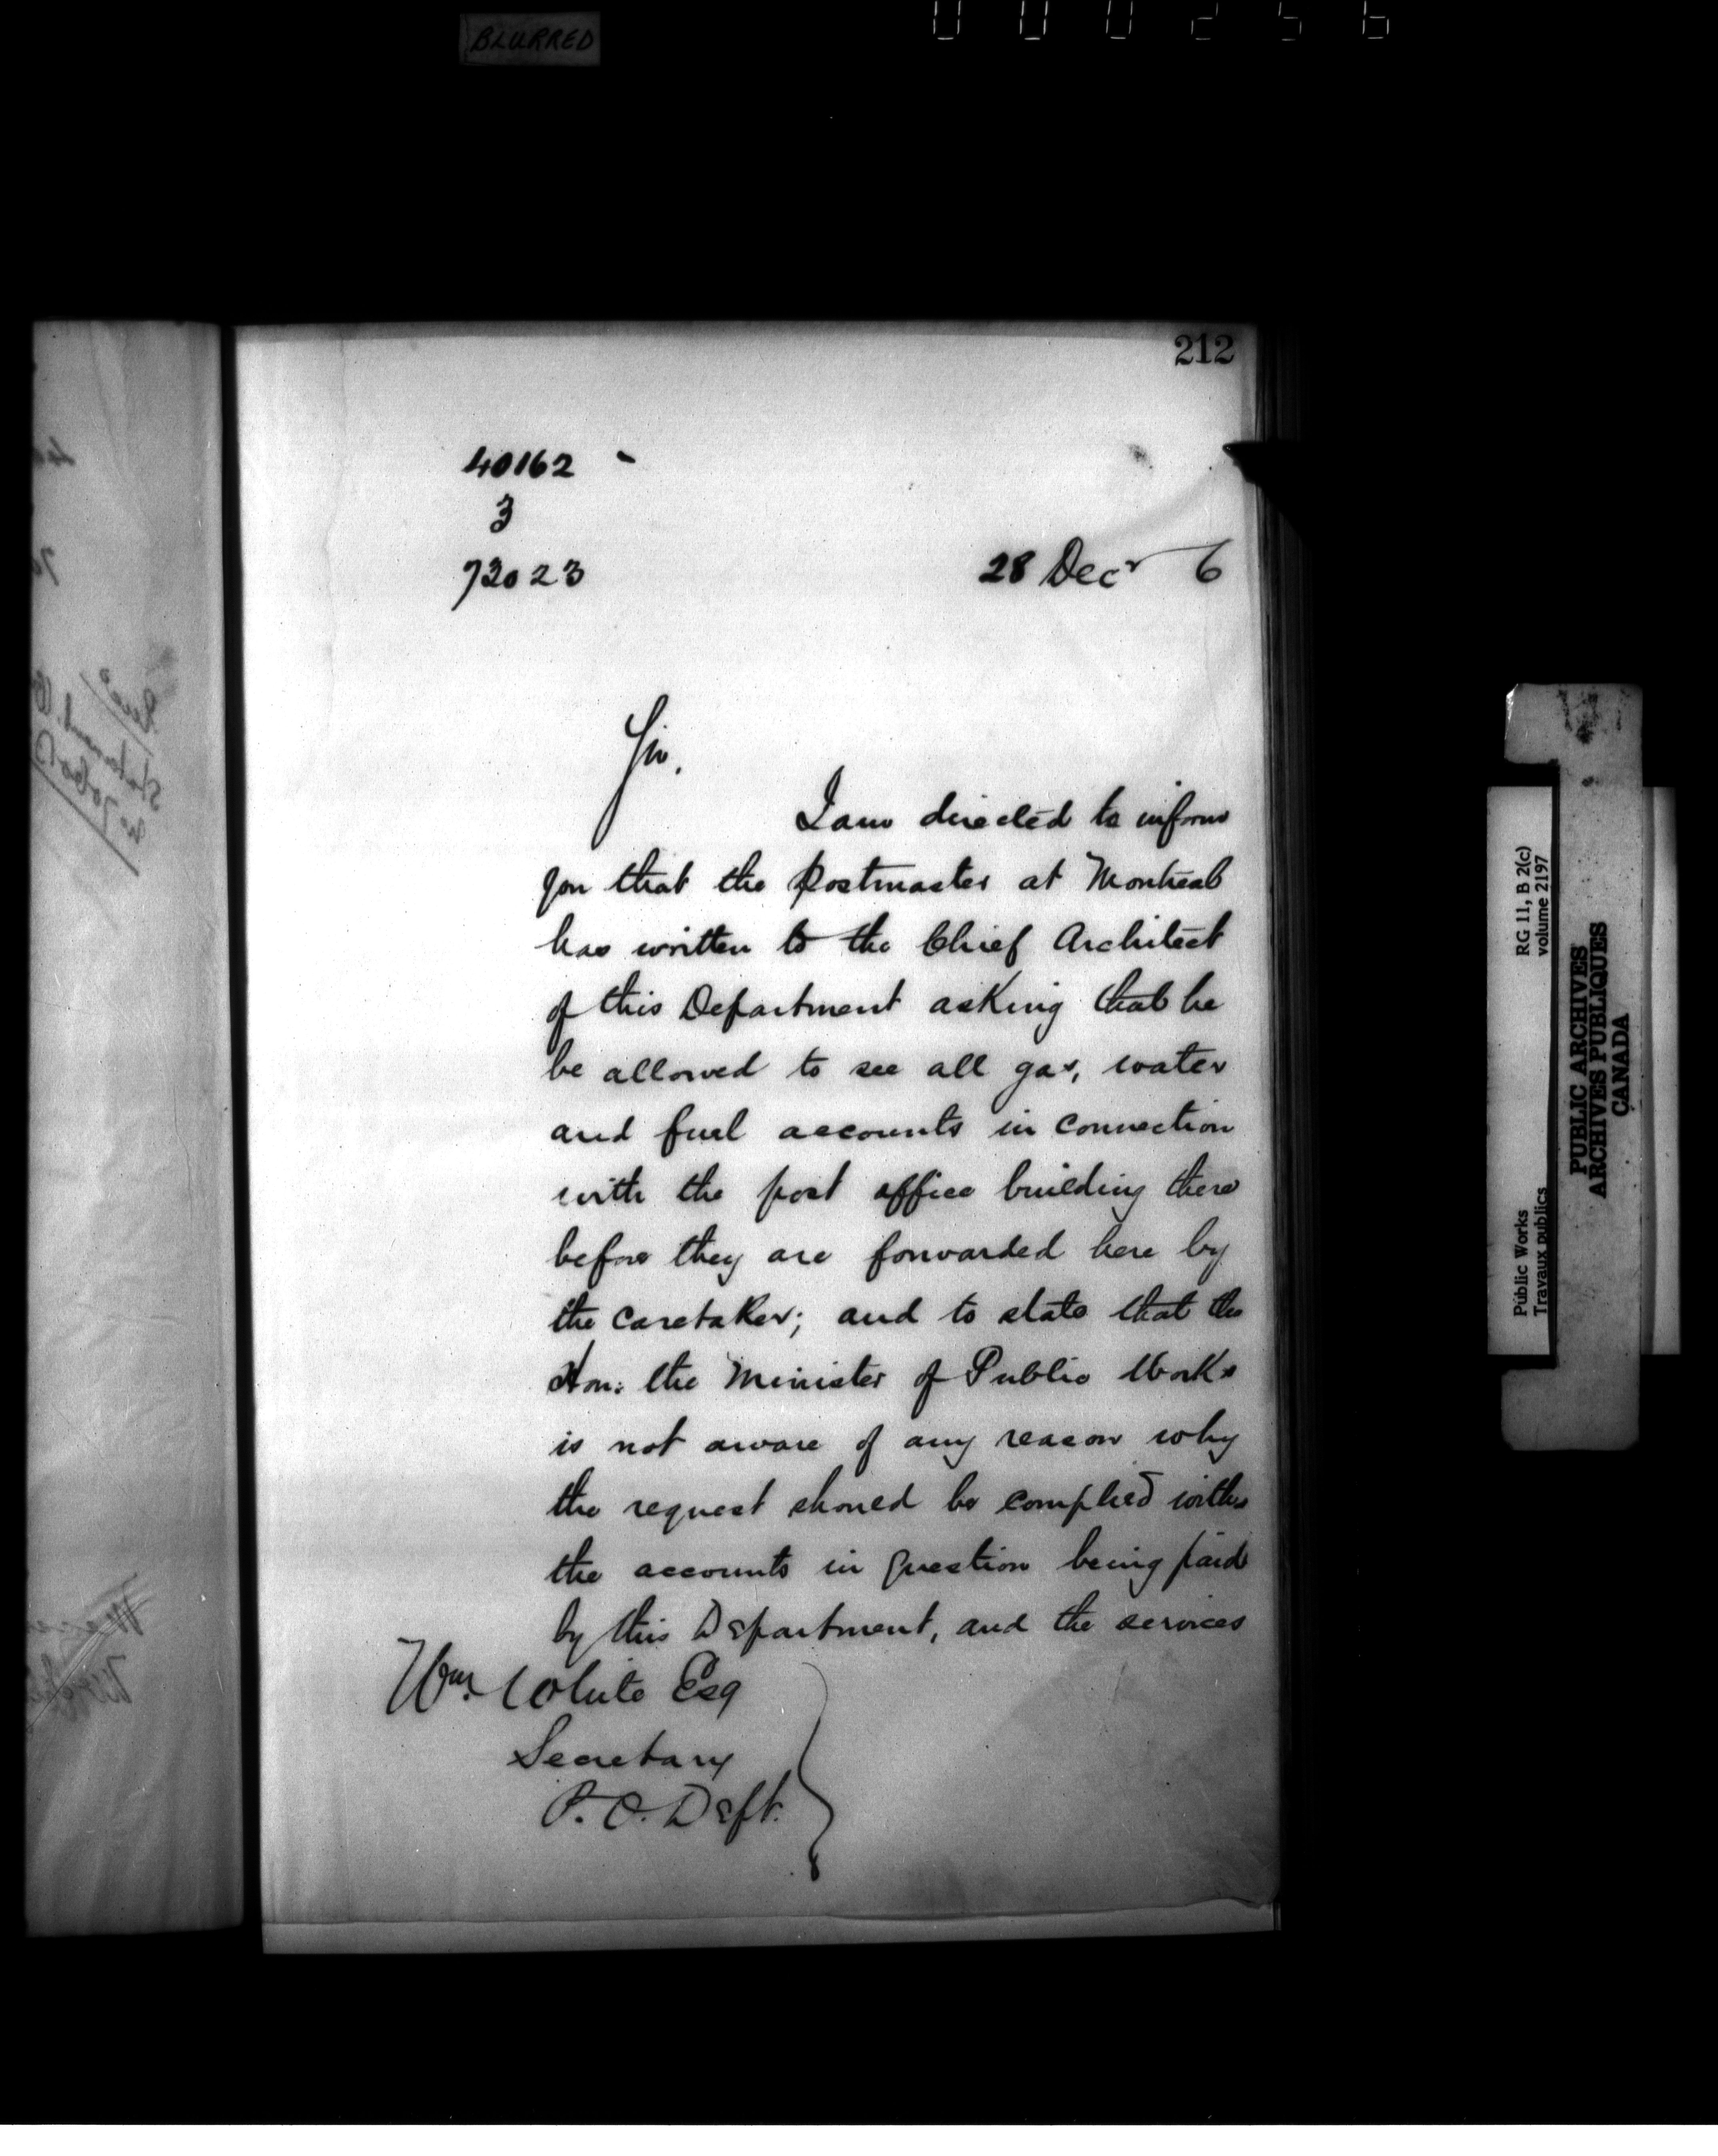 BLURRED
000256
212
40162 -
3
73023
28 Decr 6
Sir,
I am directed to inform
you that the Postmaster at Montreal
has written to the Chief Architect
of this Department asking that he
be allowed to see all gas, water
and fuel accounts in connection
with the post office building there
before they are forwarded here by
the Caretaker; and to state that the
Hon: the Minister of Public Works
is not aware of any reason why
the request should be complied with
the accounts in question being paid
by this Department, and the services
Wm. White Esq
Secretary
P.O. Dept.
Public Works RG 11, B 2(c)
Travaux publics volume 2197
PUBLIC ARCHIVES
ARCHIVES PUBLIQUES
CANADA